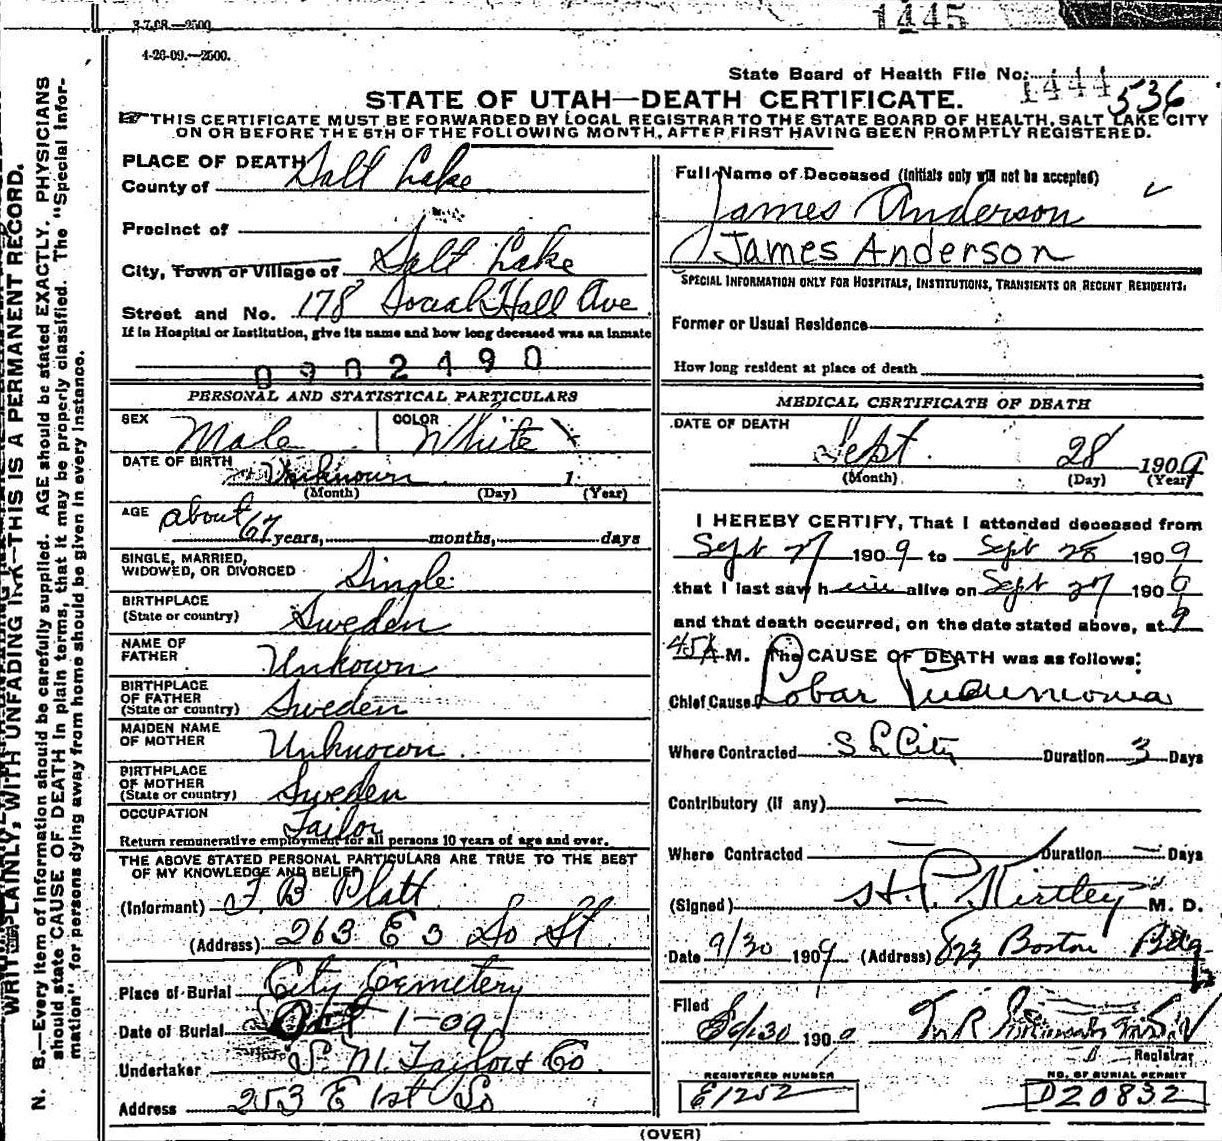 3-7-08.—2500
1445
4-26-09.—2500.
State Board of Health File No. 1444 536
STATE OF UTAH—DEATH CERTIFICATE.
THIS CERTIFICATE MUST BE FORWARDED BY LOCAL REGISTRAR TO THE STATE BOARD OF HEALTH, SALT LAKE CITY
ON OR BEFORE THE 5TH OF THE FOLLOWING MONTH, AFTER FIRST HAVING BEEN PROMPTLY REGISTERED.
PLACE OF DEATH
County of Salt Lake
Precinct of
City, Town or Village of Salt Lake
Street and No. 178 Social Hall Ave
If in Hospital or Institution, give its name and how long deceased was an inmate
0902490
PERSONAL AND STATISTICAL PARTICULARS
SEX Male COLOR White
DATE OF BIRTH Unknown 1
(Month) (Day) (Year)
AGE about 67 years, months, days
SINGLE, MARRIED,
WIDOWED, OR DIVORCED Single
BIRTHPLACE
(State or country) Sweden
NAME OF
FATHER Unkown
BIRTHPLACE
OF FATHER
(State or country) Sweden
MAIDEN NAME
OF MOTHER Unknown.
BIRTHPLACE
OF MOTHER
(State or country) Sweden
OCCUPATION Tailor
Return remunerative employment for all persons 10 years of age and over.
THE ABOVE STATED PERSONAL PARTICULARS ARE TRUE TO THE BEST
OF MY KNOWLEDGE AND BELIEF
(Informant) F. B Platt
(Address) 263 E 3 So St.
Place of Burial City Cemetery
Date of Burial Oct 1-09
Undertaker S. M. Taylor & Co
Address 253 E 1st So
Full Name of Deceased (Initials only will not be accepted)
James Anderson
James Anderson
SPECIAL INFORMATION ONLY FOR HOSPITALS, INSTITUTIONS, TRANSIENTS OR RECENT RESIDENTS.
Former or Usual Residence
How long resident at place of death
MEDICAL CERTIFICATE OF DEATH
DATE OF DEATH
Sept. 28 1909
(Month) (Day) (Year)
I HEREBY CERTIFY, That I attended deceased from
Sept 27 1909 to Sept 28 1909
that I last saw him alive on Sept 27 1909
and that death occurred, on the date stated above, at 9
45 A M. The CAUSE OF DEATH was as follows:
Chief Cause Lobar Pneumonia
Where Contracted S L City Duration 3 Days
Contributory (if any) —
Where Contracted — Duration — Days
(Signed) H. P. Kirtley M. D.
Date 9/30 1909 (Address) 823 Boston Bldg
Filed 9/30 1909
Registrar
REGISTERED NUMBER
E1252
NO. OF BURIAL PERMIT
D20832
(OVER)
WRITE PLAINLY, WITH UNFADING INK—THIS IS A PERMANENT RECORD.
N. B.—Every item of information should be carefully supplied. AGE should be stated EXACTLY. PHYSICIANS
should state CAUSE OF DEATH in plain terms, that it may be properly classified. The "Special Infor-
mation" for persons dying away from home should be given in every instance.